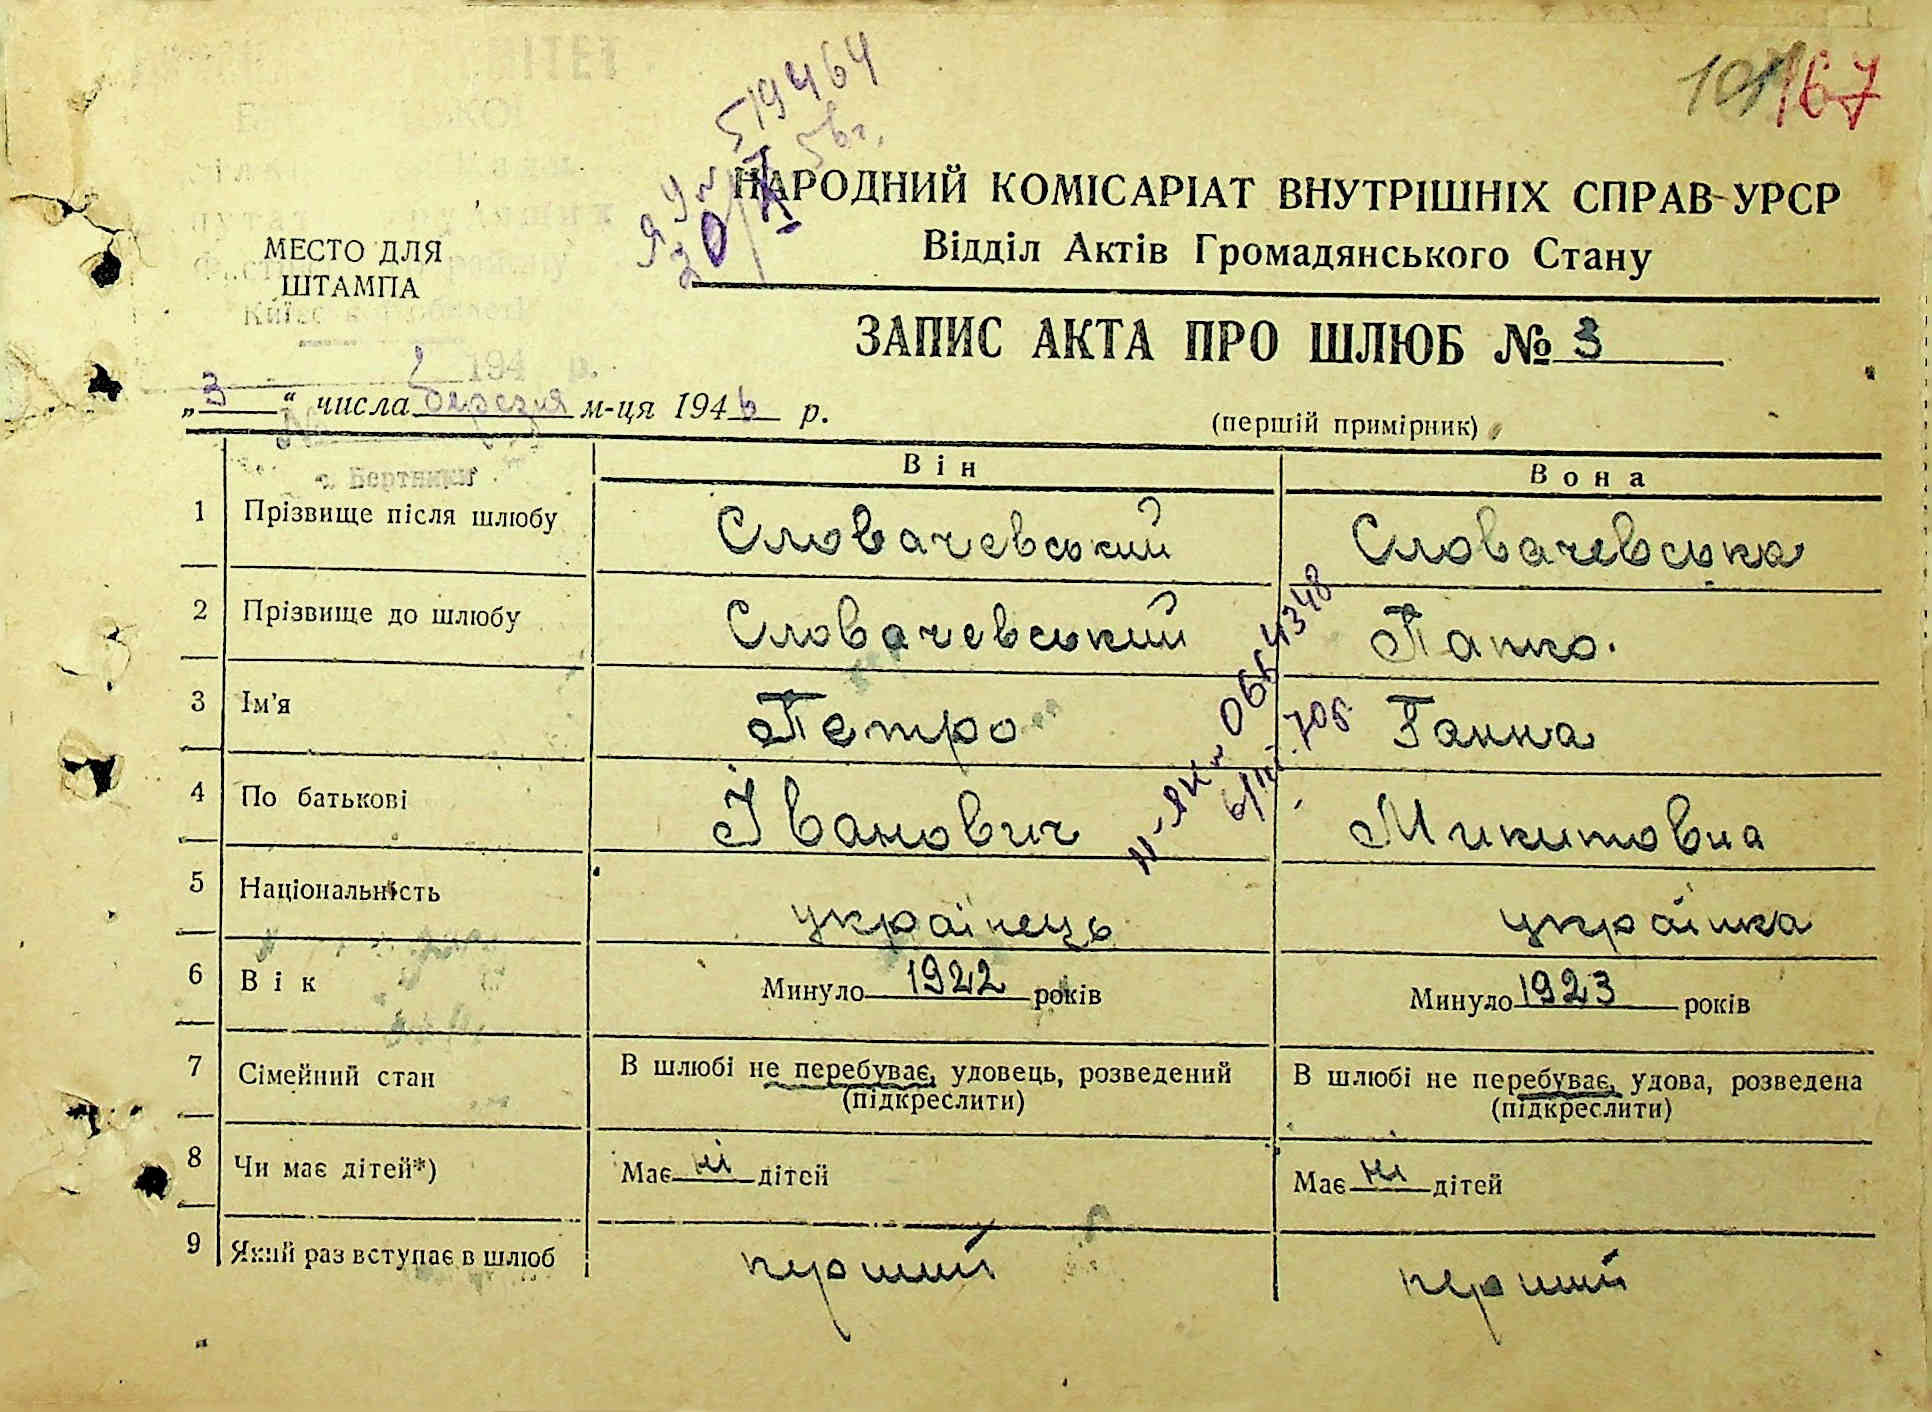 167
519464
56г.
НАРОДНИЙ КОМІСАРІАТ ВНУТРІШНІХ СПРАВ УРСР
Відділ Актів Громадянського Стану
МЕСТО ДЛЯ
ШТАМПА
ЗАПИС АКТА ПРО ШЛЮБ № 3
194 р.
„3“ числа березня м-ця 1946 р.
(першій примірник)
Він Вона
1 Прізвище після шлюбу Словачевський Словачевська
2 Прізвище до шлюбу Словачевський Папко.
3 Ім'я Петро Ганна
4 По батькові Іванович Микитовна
5 Національність українець українка
6 Вік Минуло 1922 років Минуло 1923 років
7 Сімейний стан В шлюбі не перебуває, удовець, розведений В шлюбі не перебуває, удова, розведена
(підкреслити) (підкреслити)
8 Чи має дітей*) Має ні дітей Має ні дітей
9 Який раз вступає в шлюб перший перший